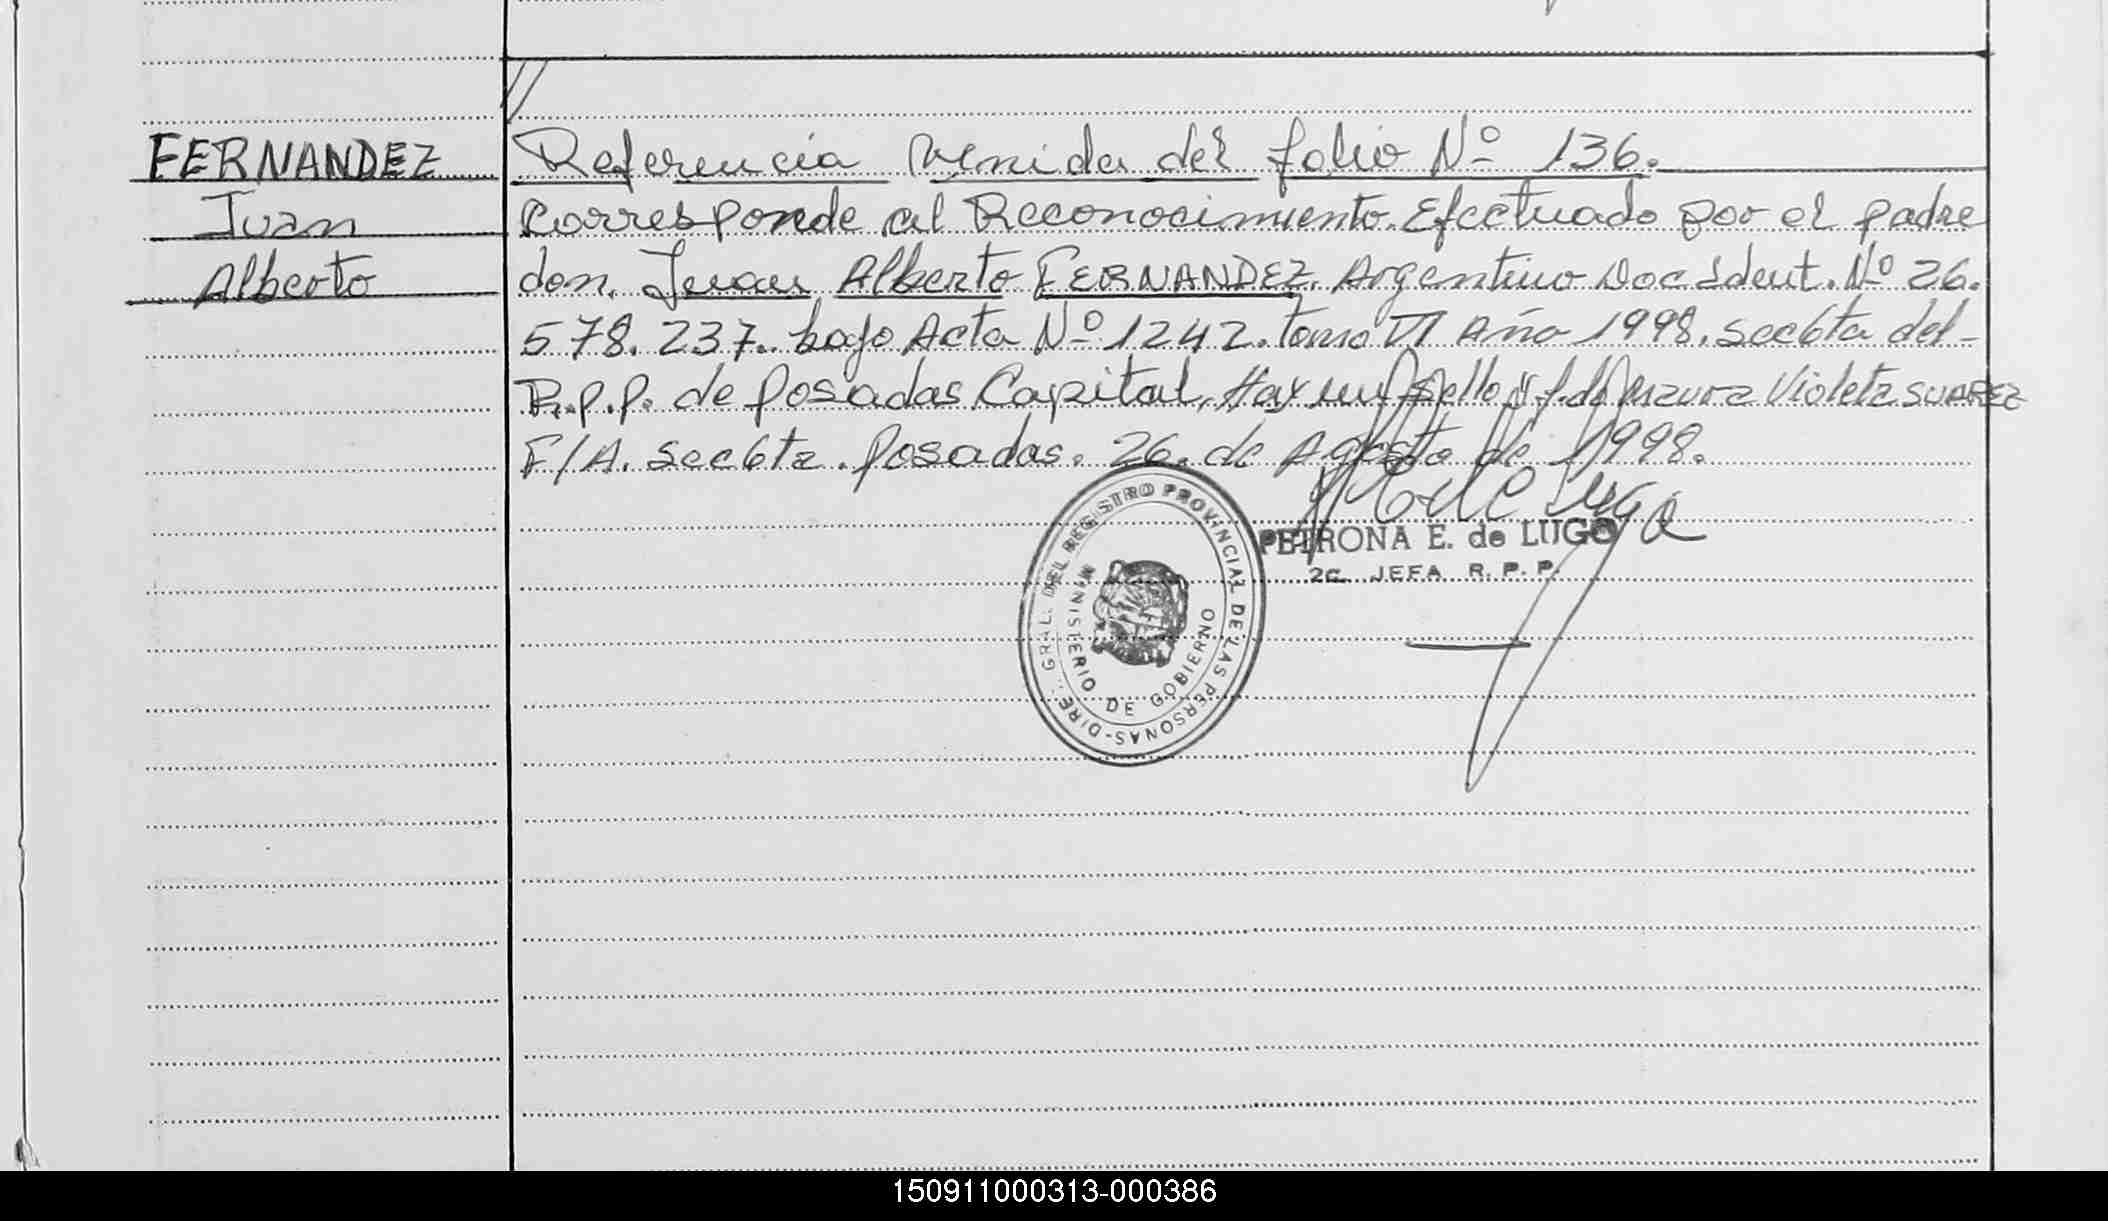 //
FERNANDEZ
Juan
Alberto
Referencia venida del folio Nº 136.
Corresponde al Reconocimiento. Efectuado por el padre
don. Juan Alberto FERNANDEZ. Argentino Doc Ident. Nº 26.
578.237. bajo Acta Nº 1242. tomo VI Año 1998. sec 6ta del-
R.p.p. de posadas Capital, Hay un sello y f. do Maura Violeta SUAREZ
F/A. sec 6ta. posadas. 26. de Agosto de 1998.
PETRONA E. de LUGO
2c. JEFA R. P. P.
DIRE. GRAL. DEL REGISTRO PROVINCIAL DE LAS PERSONAS-
MINISTERIO DE GOBIERNO
150911000313-000386